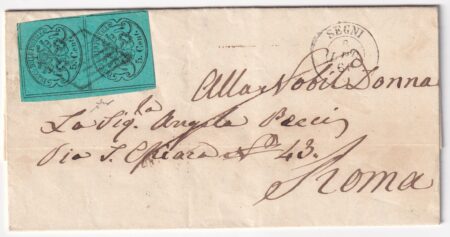 5. Cen.
5. Cen.
SEGNI
Alla Nobil Donna
La Sig.ra Angela Pecci
Via S. Chiara No. 43.
Roma